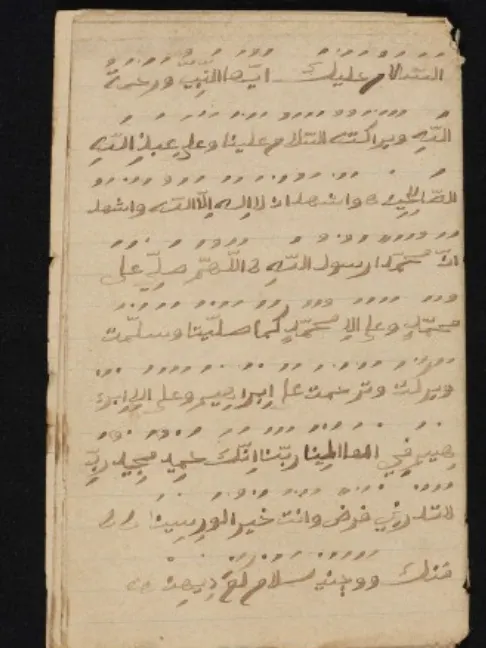 السلام عليك ايها النبي ورحمة
الله وبراكته السلام علينا وعلى عبد الله
الصالحين واشهد ان لا اله الا الله واشهد
ان محمدا رسول الله اللهم صلي على
محمد وعلى ال محمد كما صليتا وسلمت
وبركت وترحمت على ابراهيم وعلى ال ابر
هيم في العالمينا ربنا انك حميد مجيد رب
لا تدرني فرض وانت خير الورسينا
سلام